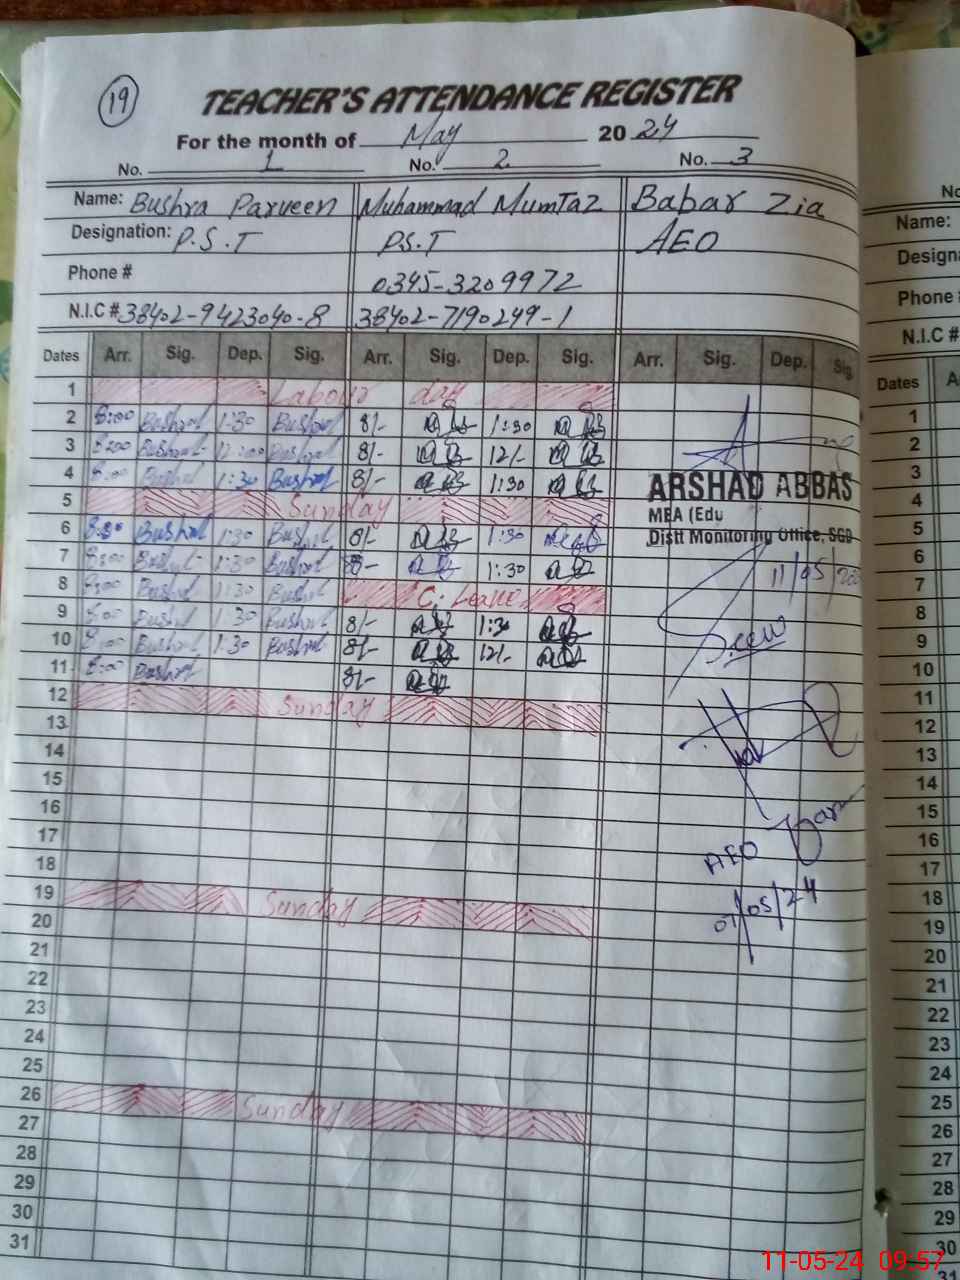 19
TEACHER'S ATTENDANCE REGISTER
For the month of May 2024
No. 1 No. 2 No. 3
Name: Bushra Parveen Muhammad Mumtaz Babar Zia
Designation: P.S.T P.S.T AEO
Phone # 0345-3209972
N.I.C # 38402-9423040-8 38402-7190249-1
Dates Arr. Sig. Dep. Sig. Arr. Sig. Dep. Sig. Arr. Sig. Dep. Sig
1 Labour day
2 8:00 Bushra 1:30 Bushra 8/- 1:30
3 8:00 Bushra 12:00 Bushra 8/- 12/-
4 8:00 Bushra 1:30 Bushra 8/- 1:30
ARSHAD ABBAS
5 Sunday
MEA (Edu
Distt Monitoring Office, SGD
6 8:00 Bushra 1:30 Bushra 8/- 1:30
7 8:00 Bushra 1:30 Bushra 8- 1:30
11/05/20
8 8:00 Bushra 1:30 Bushra C. Leave
9 8:00 Bushra 1:30 Bushra 8/- 1:30
10 8:00 Bushra 1:30 Bushra 8/- 12/-
Seen
11 8:00 Bushra 8/-
12 Sunday
13
14
15
16
17
18
AEO
19 Sunday
07/05/24
20
21
22
23
24
25
26 Sunday
27
28
29
30
31
No
Name:
Design
Phone
N.I.C #
Dates A
1
2
3
4
5
6
7
8
9
10
11
12
13
14
15
16
17
18
19
20
21
22
23
24
25
26
27
28
29
30
31
11-05-24 09:57